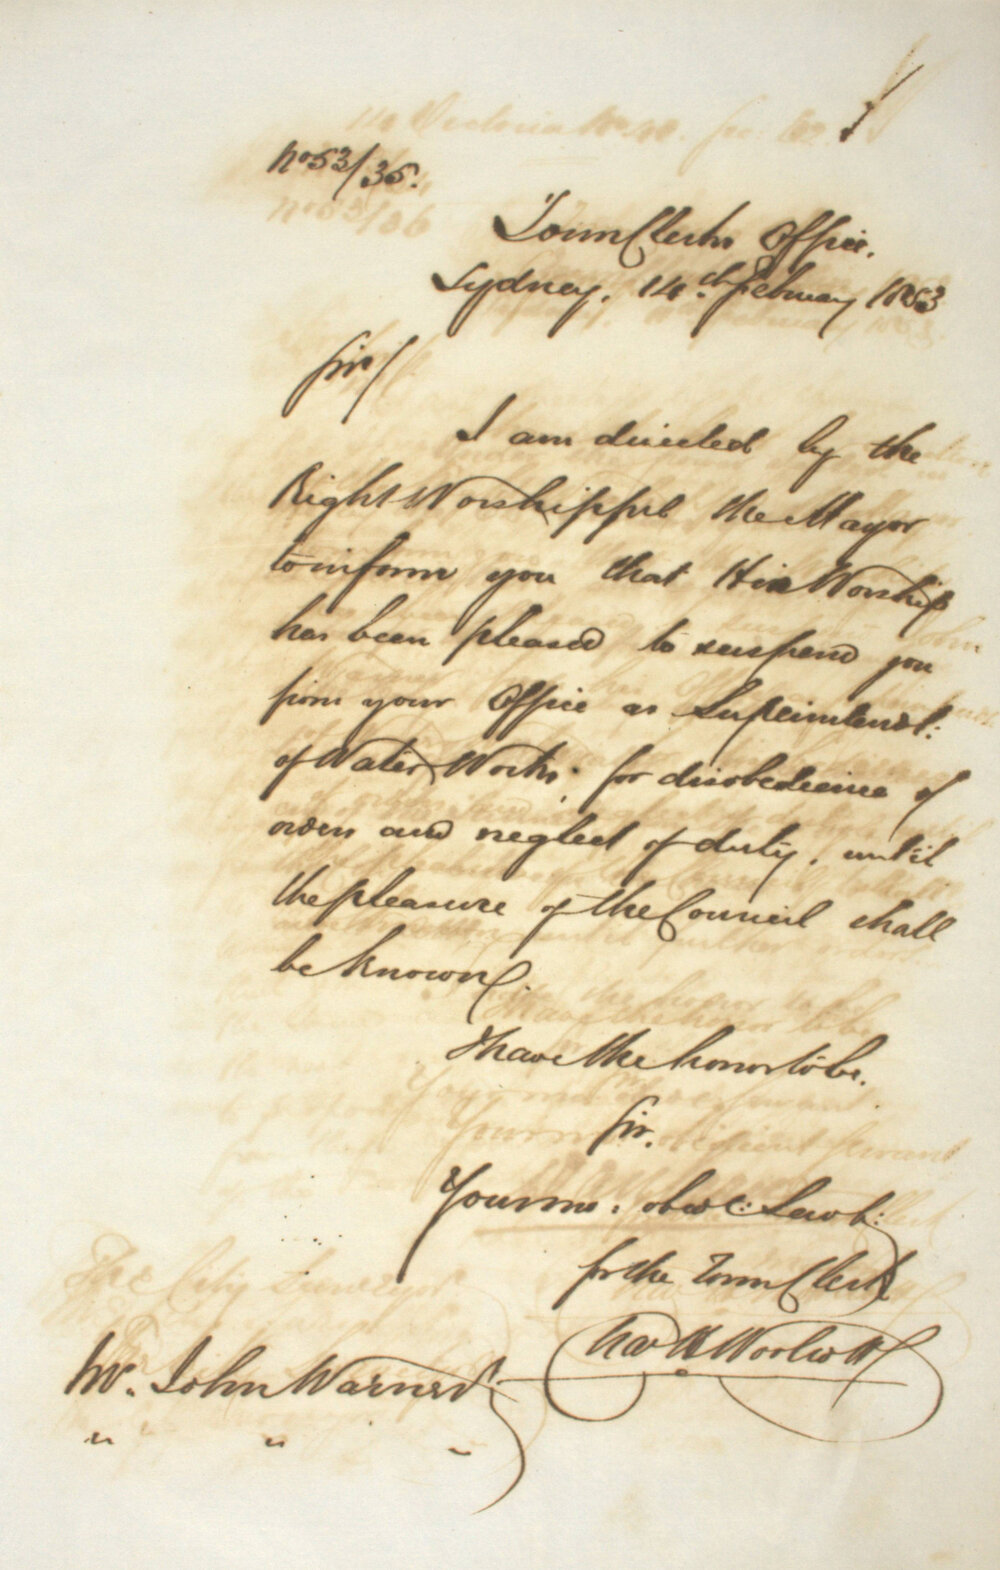 No 53/35.
Town Clerks Office.
Sydney, 14th February 1853
Sir/
I am directed by the
Right Worshipful the Mayor
to inform you that His Worship
has been pleased to suspend you
from your Office as Superintendt:
of Water Works, for disobedience of
orders and neglect of duty, until
the pleasure of the Council shall
be known.
I have the honor to be.
Sir,
Your mo. obedt: Servt:
for the Town Clerk
Chas H Woolcott
Mr. John Warner
" " "